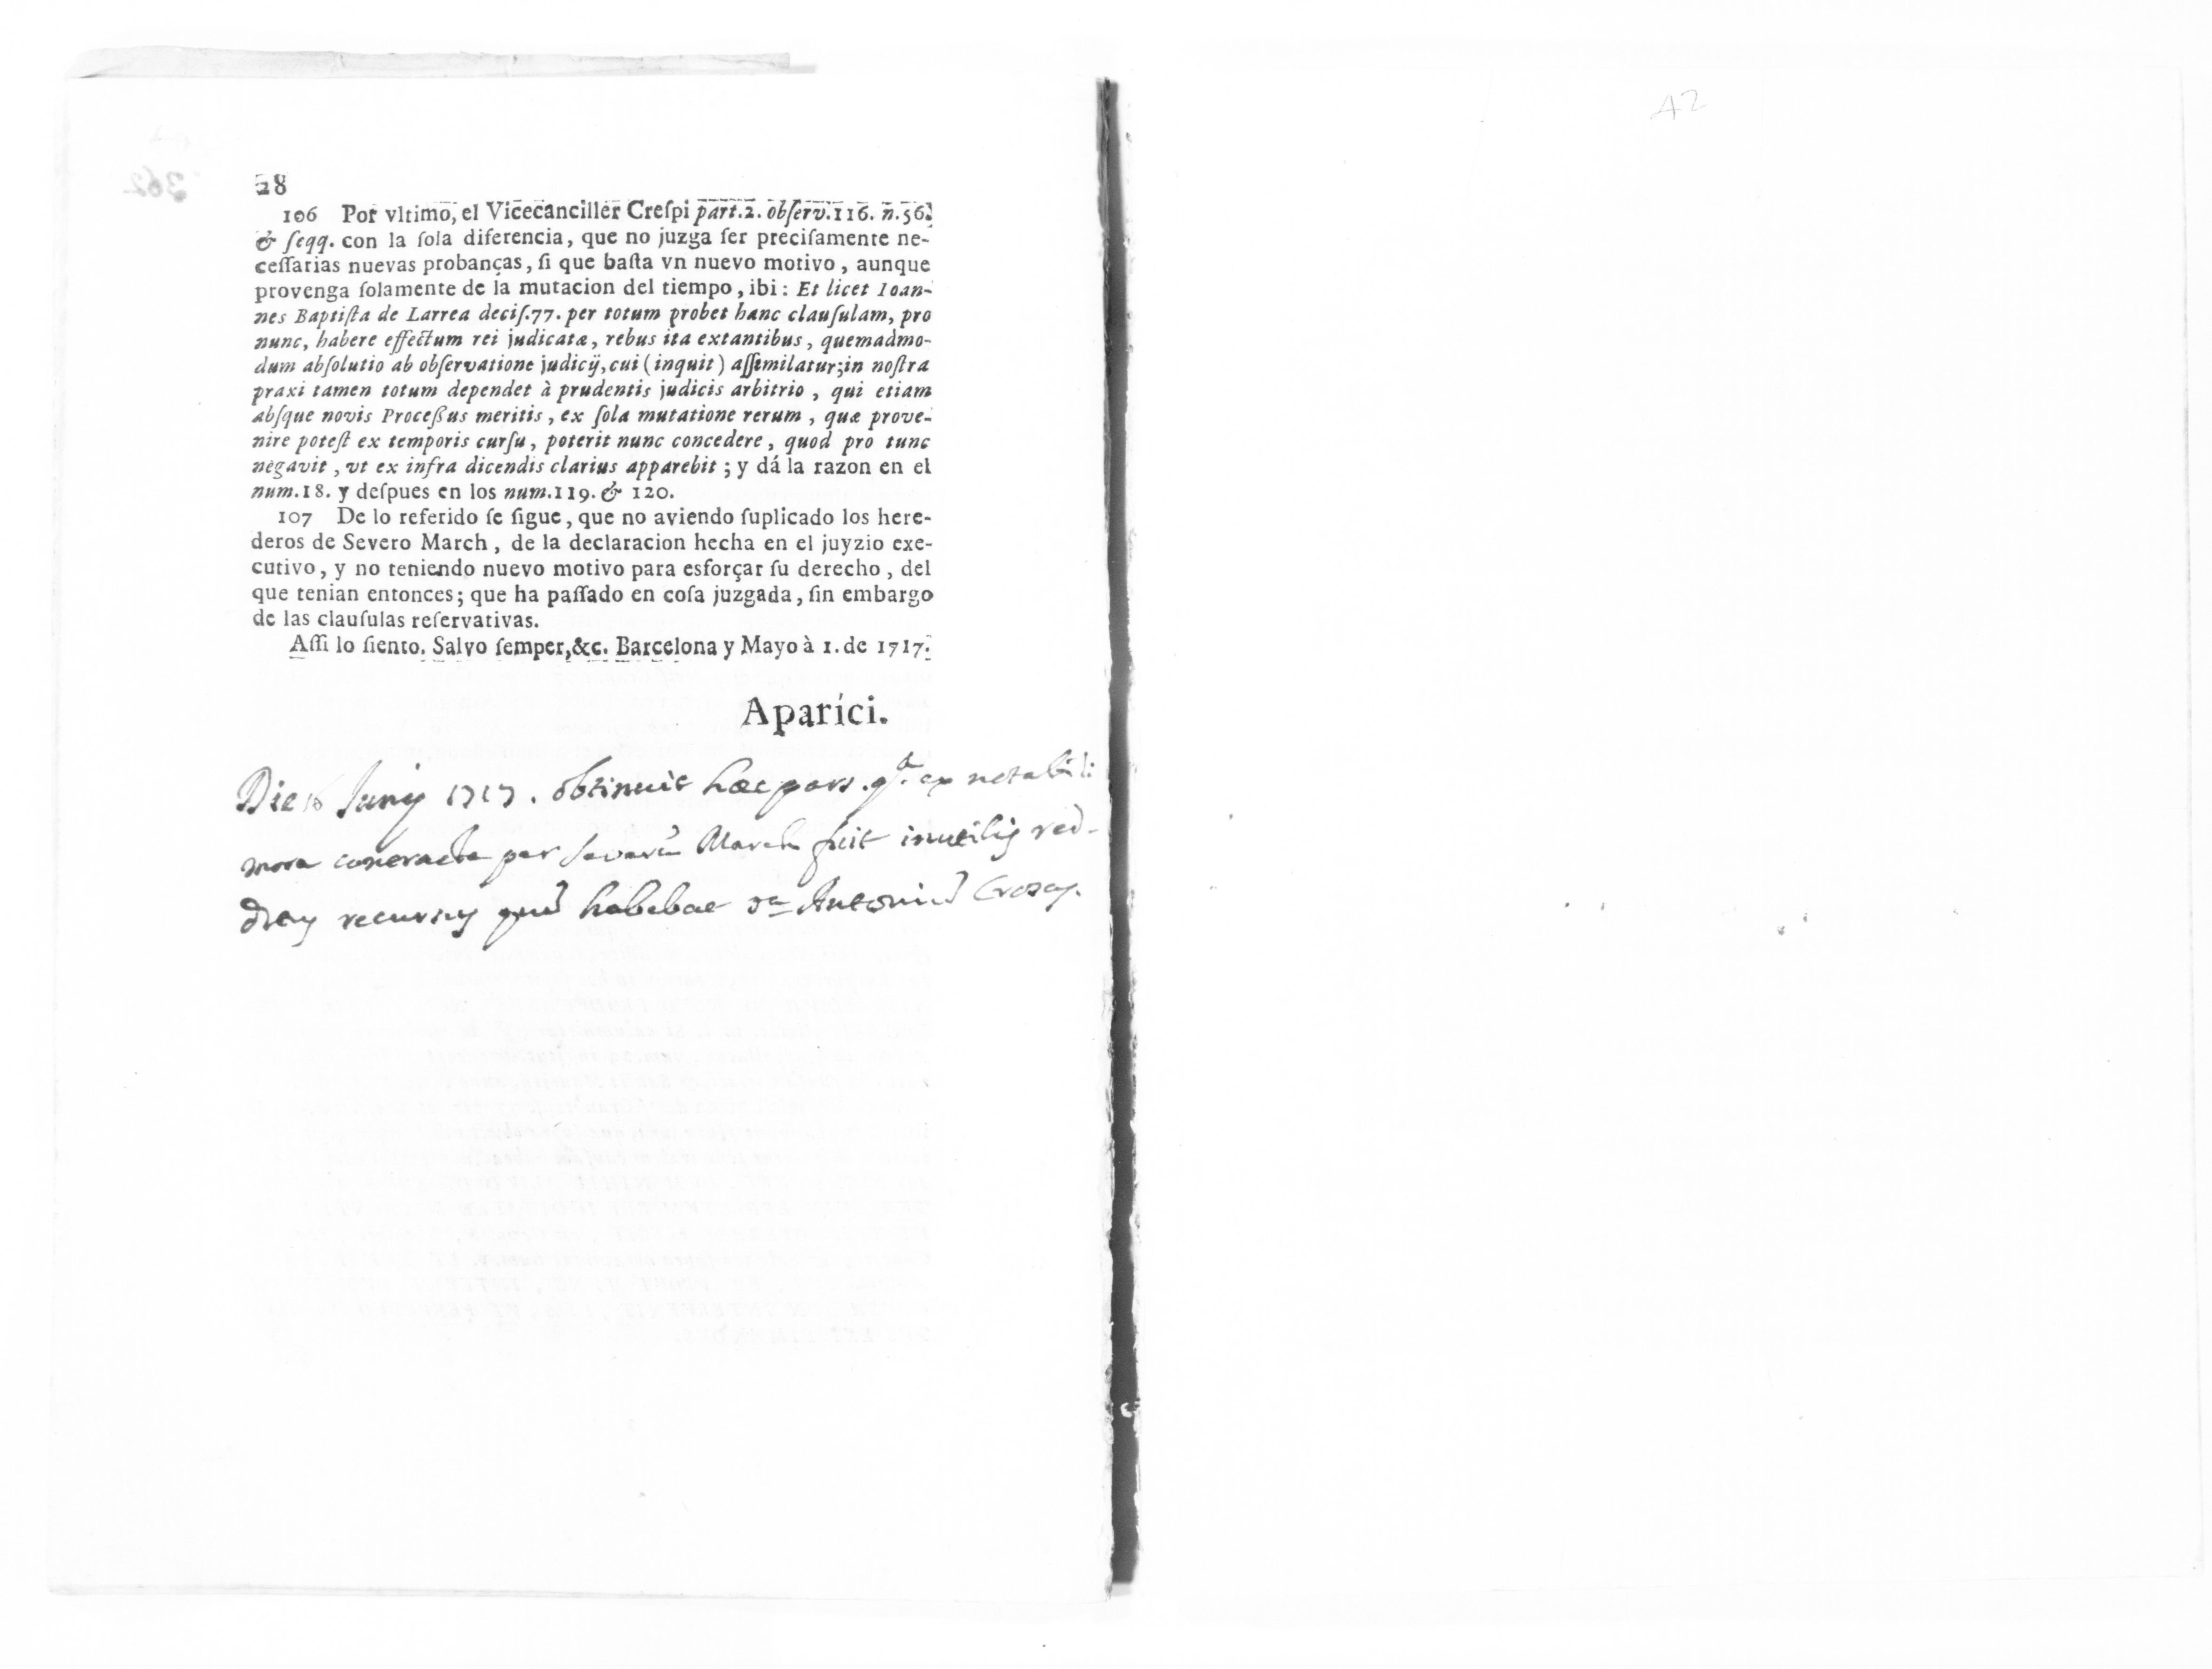 28
106 Por vltimo, el Vicecanciller Creſpi part.2. obſerv.116. n.56.
& ſeqq. con la ſola diferencia, que no juzga ſer preciſamente ne-
ceſſarias nuevas probanças, ſi que baſta vn nuevo motivo, aunque
provenga ſolamente de la mutacion del tiempo, ibi: Et licet Ioan-
nes Baptiſta de Larrea deciſ.77. per totum probet hanc clauſulam, pro
nunc, habere effectum rei judicatæ, rebus ita extantibus, quemadmo-
dum abſolutio ab obſervatione judicij, cui (inquit) aſſimilatur; in noſtra
praxi tamen totum dependet à prudentis judicis arbitrio, qui etiam
abſque novis Proceßus meritis, ex ſola mutatione rerum, quæ prove-
nire poteſt ex temporis curſu, poterit nunc concedere, quod pro tunc
negavit, vt ex infra dicendis clarius apparebit; y dá la razon en el
num.18. y deſpues en los num.119. & 120.
107 De lo referido ſe ſigue, que no aviendo ſuplicado los here-
deros de Severo March, de la declaracion hecha en el juyzio exe-
cutivo, y no teniendo nuevo motivo para esforçar ſu derecho, del
que tenian entonces; que ha paſſado en coſa juzgada, ſin embargo
de las clauſulas reſervativas.
Aſſi lo ſiento. Salvo ſemper, &c. Barcelona y Mayo à 1. de 1717.
Aparici.
Die Junij 1717. obtinuit hæc pars. qa. ex notabili
mora contracta per Severũ March fuit inutilis red-
recursus habebat Antoniũ
362
A2